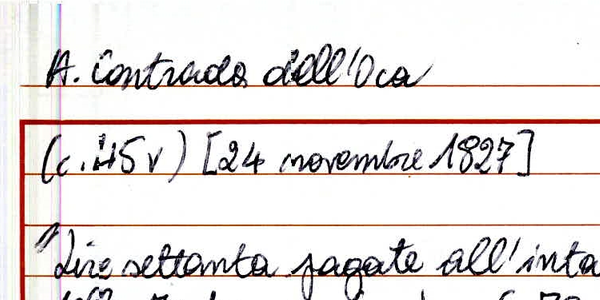 A. Contrada dell'Oca
(c. 45v) [24 novembre 1827]
"Lire settanta pagate all'inta